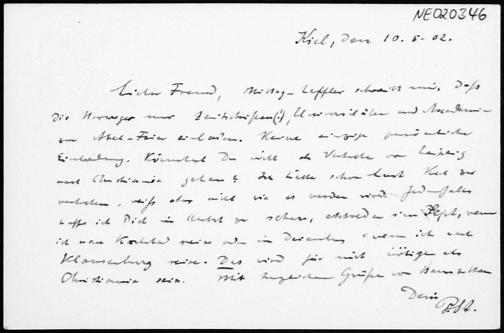 NE020346
Kiel, den 10.5.02.
Lieber Freund, Mittag-Leffler schreibt mir, daß
die Norweger nur Zeitschriften(!), Universitäten und Akademien
zur Abel-Feier einladen. Keine einzige persönliche
Einladung. Könntest Du nicht als Vertreter von Leipzig
nach Christiania gehen? Ich hätte schon Lust Kiel zu
vertreten, weiß aber nicht wie es werden wird. Jedenfalls
hoffe ich Dich im Herbst zu sehen, entweder im Sept, wenn
ich nach Karlsbad reise oder im December, wenn ich nach
Klausenburg reise. Das wird für mich nötiger als
Christiania sein. Mit herzlichen Grüßen von Haus zu Haus
Dein
P. St.